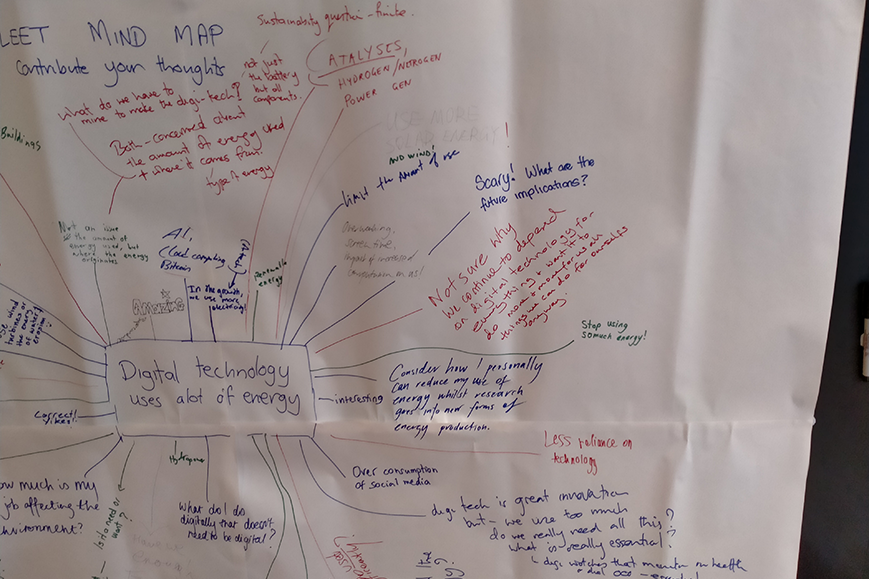 LEET MIND MAP
Contribute your thoughts
Sustainability question - finite.
not just
the battery
but all
components.
What do we have to
mine to make the digi-tech?
CATALYSES,
HYDROGEN/NITROGEN
POWER GEN
Both - concerned about
the amount of energy used
+ where it comes from.
type of energy
USE MORE
SOLAR ENERGY!
AND WIND!
Buildings
limit the amount of use
Scary! What are the
future implications?
Not an issue
the amount of
energy used, but
where the energy
originates
AI,
Cloud computing
Bitcoin
In the growth,
we use more
electricity!
renewable
energy
Overworking,
screen time,
impact of increased
consumption on us!
Not sure why
we continue to depend
on digital technology for
everything & want it to
do more & more for us when
things we can do for ourselves
anyway.
Amazing
use wind
turbines or
the energy
of walking
Stop using
so much energy!
Digital technology
uses alot of energy
interesting
Consider how I personally
can reduce my use of
energy whilst research
goes into new forms of
energy production.
Correct!
Yikes!
Less reliance on
technology
Hydrogen
Over consumption
of social media
how much is my
job affecting the
environment?
to do need or
want?
What do I do
digitally that doesn't
need to be digital?
digi tech is great innovation
but - we use too much
do we really need all this?
what is really essential?
digi watches that monitor our health